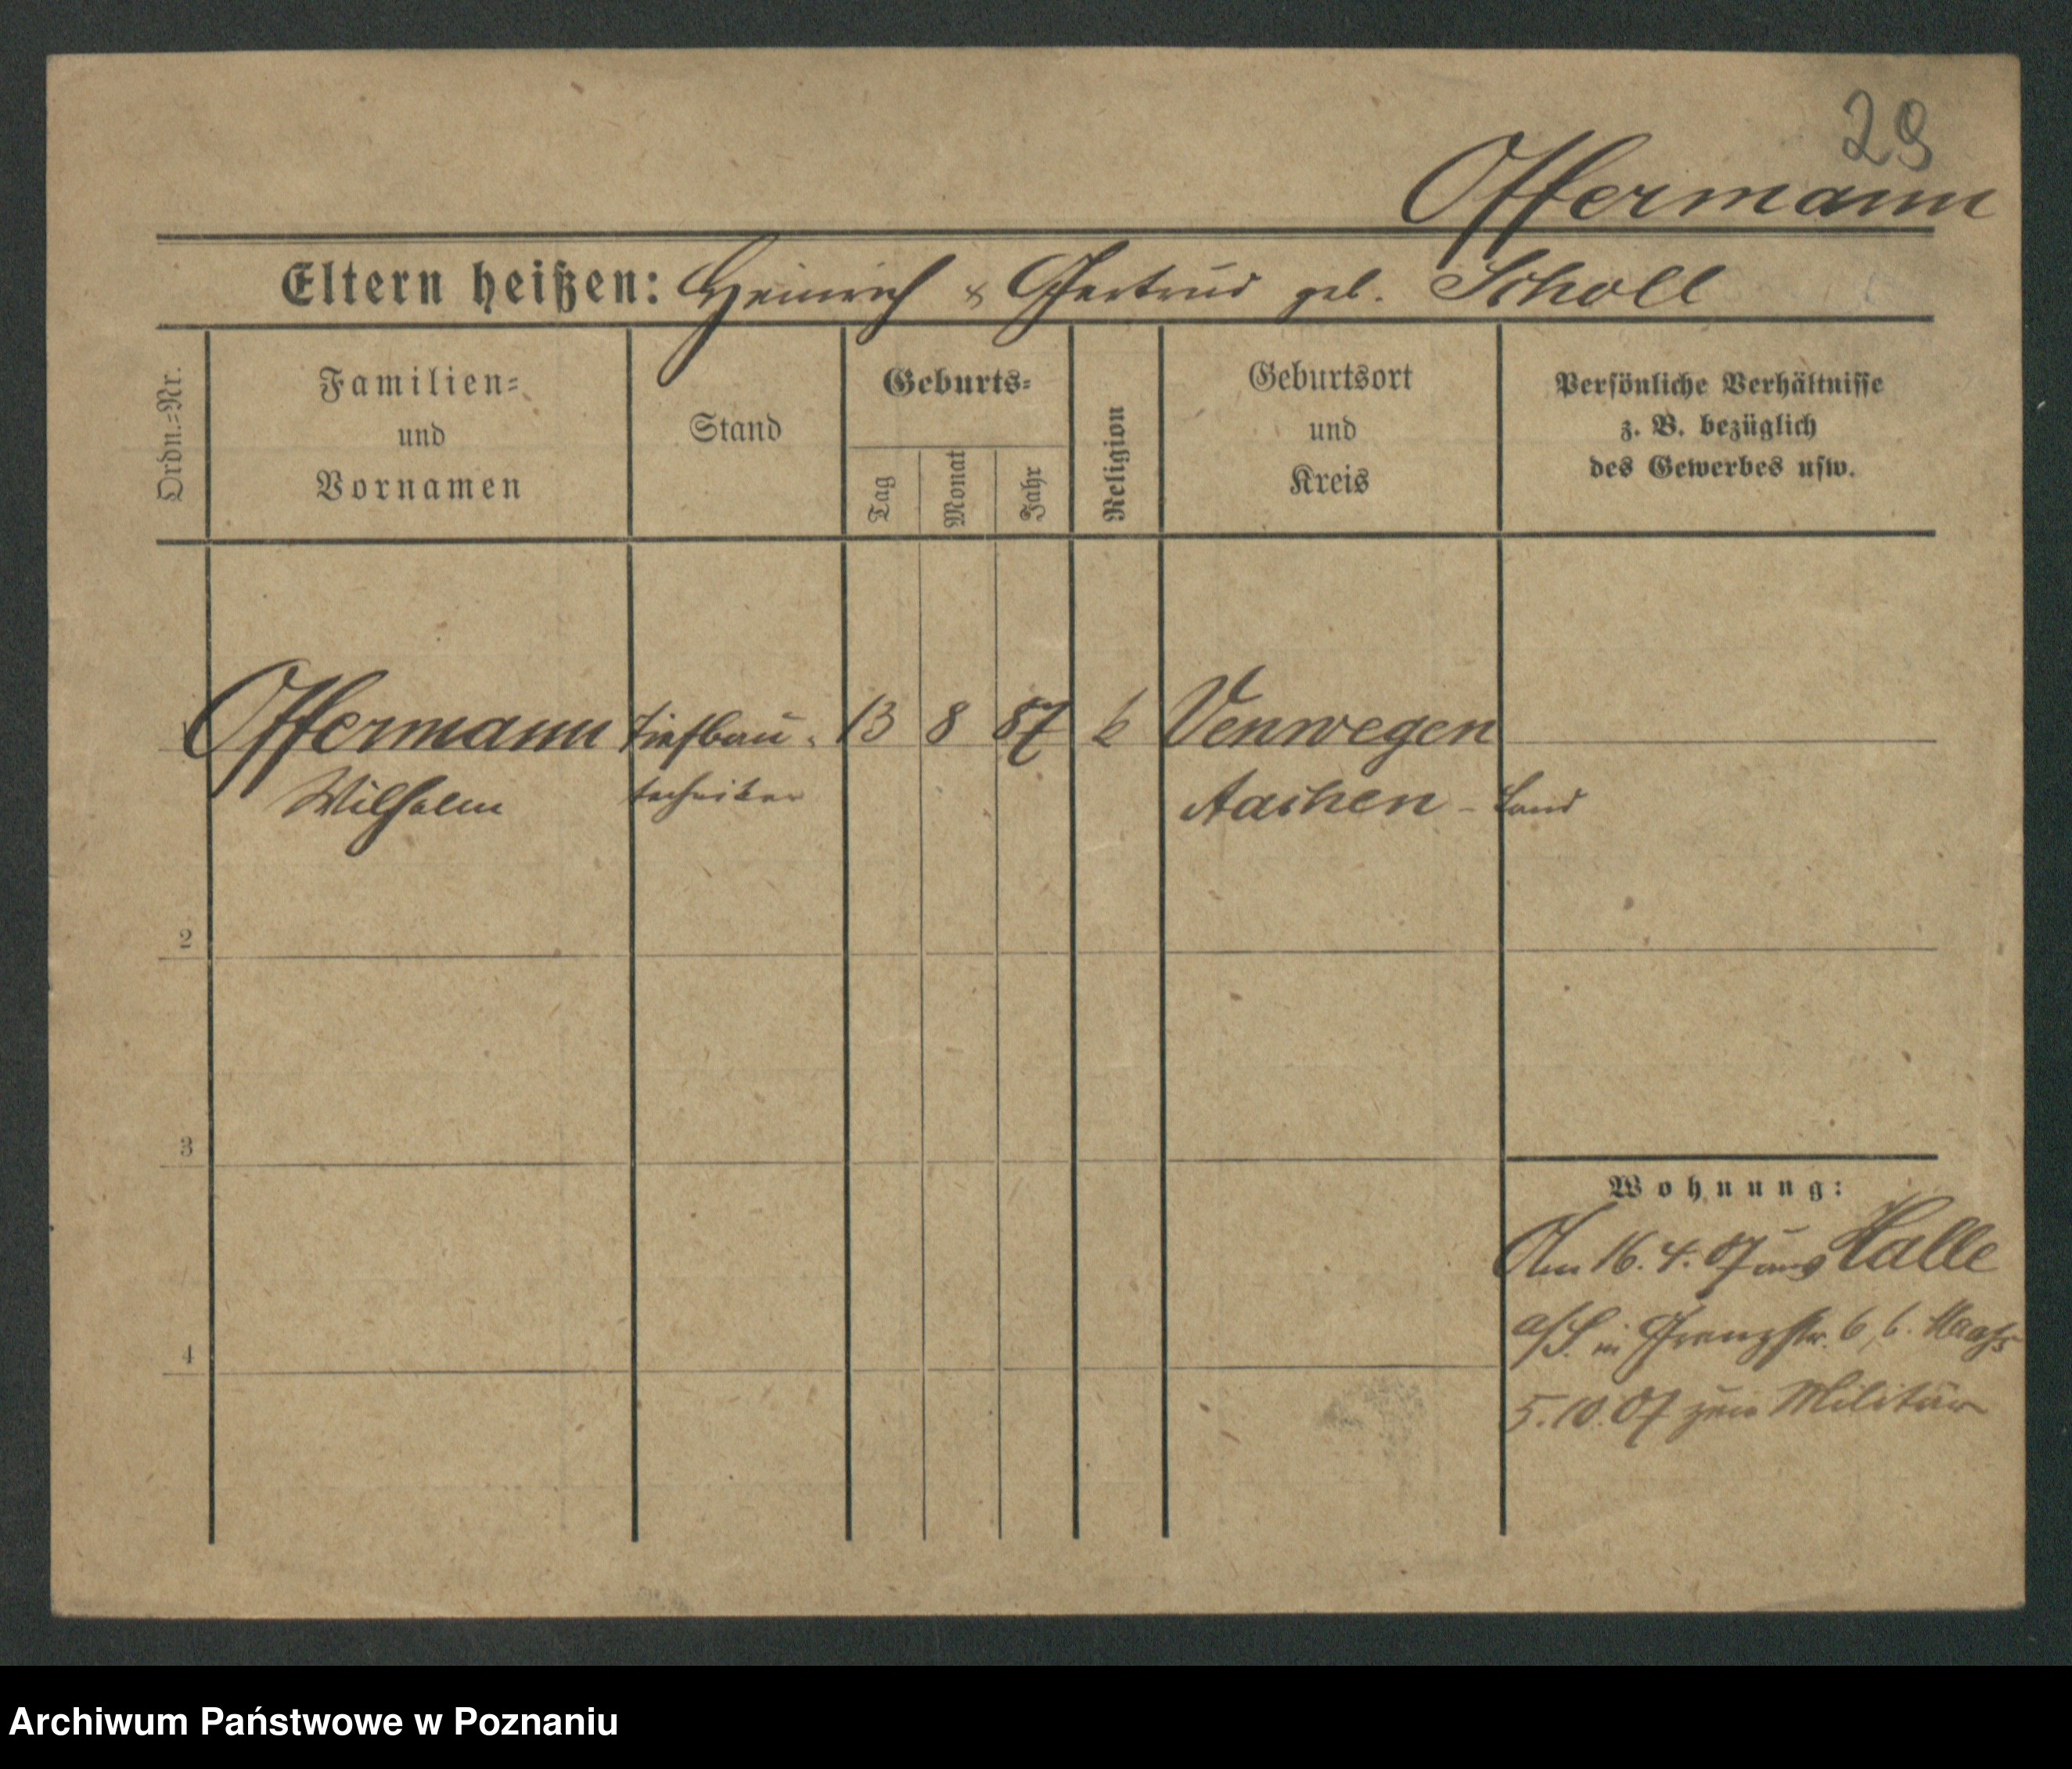 29
Offermann
Eltern heißen: Heinrich & Gertrud geb. Scholl
Ordn.=Nr.
Familien=
und
Vornamen
Stand
Geburts=
Tag
Monat
Jahr
Religion
Geburtsort
und
Kreis
Persönliche Verhältnisse
z. B. bezüglich
des Gewerbes usw.
1 Offermann Tiefbau- 13 8 87 k Venwegen
Wilhelm techniker Aachen - Land
2
3
Wohnung:
Am 16. 4. 07 aus Halle
a/S. in Prenzstr. 6, b.
4
5. 10. 07 zum Militär
Archiwum Państwowe w Poznaniu